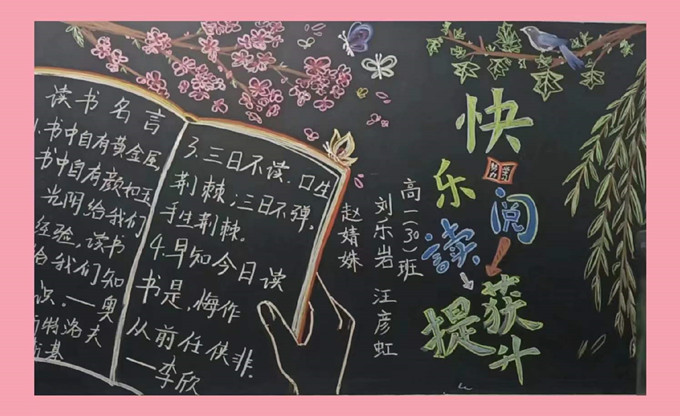 读书名言
1.书中自有黄金屋
书中自有颜如玉
光阴给我们
经验,读书
给我们知
识.——奥
斯特洛夫
斯基
3.三日不读.口生
荆棘;三日不弹,
手生荆棘.
4.早知今日读
书是,悔作
从前任侠非.
——李欣
高一(30)班
刘乐岩 汪彦虹
赵婧姝
快乐阅读
获提升